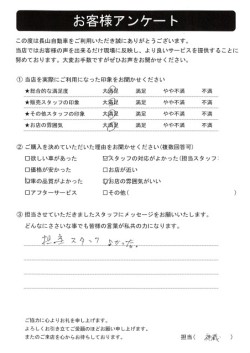 お客様アンケート
この度は長山自動車をご利用いただき誠にありがとうございます。
当店ではお客様の声を出来るだけ現場に反映し、より良いサービスを提供することに
努めております。大変お手数ですがぜひお声をお聞かせください。
① 当店を実際にご利用になった印象をお聞かせください
★総合的な満足度 大満足 満足 やや不満 不満
★販売スタッフの印象 大満足 満足 やや不満 不満
★その他スタッフの印象 大満足 満足 やや不満 不満
★お店の雰囲気 大満足 満足 やや不満 不満
② ご購入を決めていただいた理由をお聞かせください(複数回答可)
□欲しい車があった ☑スタッフの対応がよかった(担当スタッフ:
□価格が安かった □お店が近い
☑車の品質がよかった ☑お店の雰囲気がいい
□アフターサービス □その他(
③ 担当させていただきましたスタッフにメッセージをお願いいたします。
どんなにささいな事でも皆様の言葉が私共の力になります。
担当スタッフ よかった。
ご協力に心よりお礼を申し上げます。
よろしくお引き立てご愛顧のほどお願い申し上げます。
またのご来店を心からお待ちしております。
担当( )